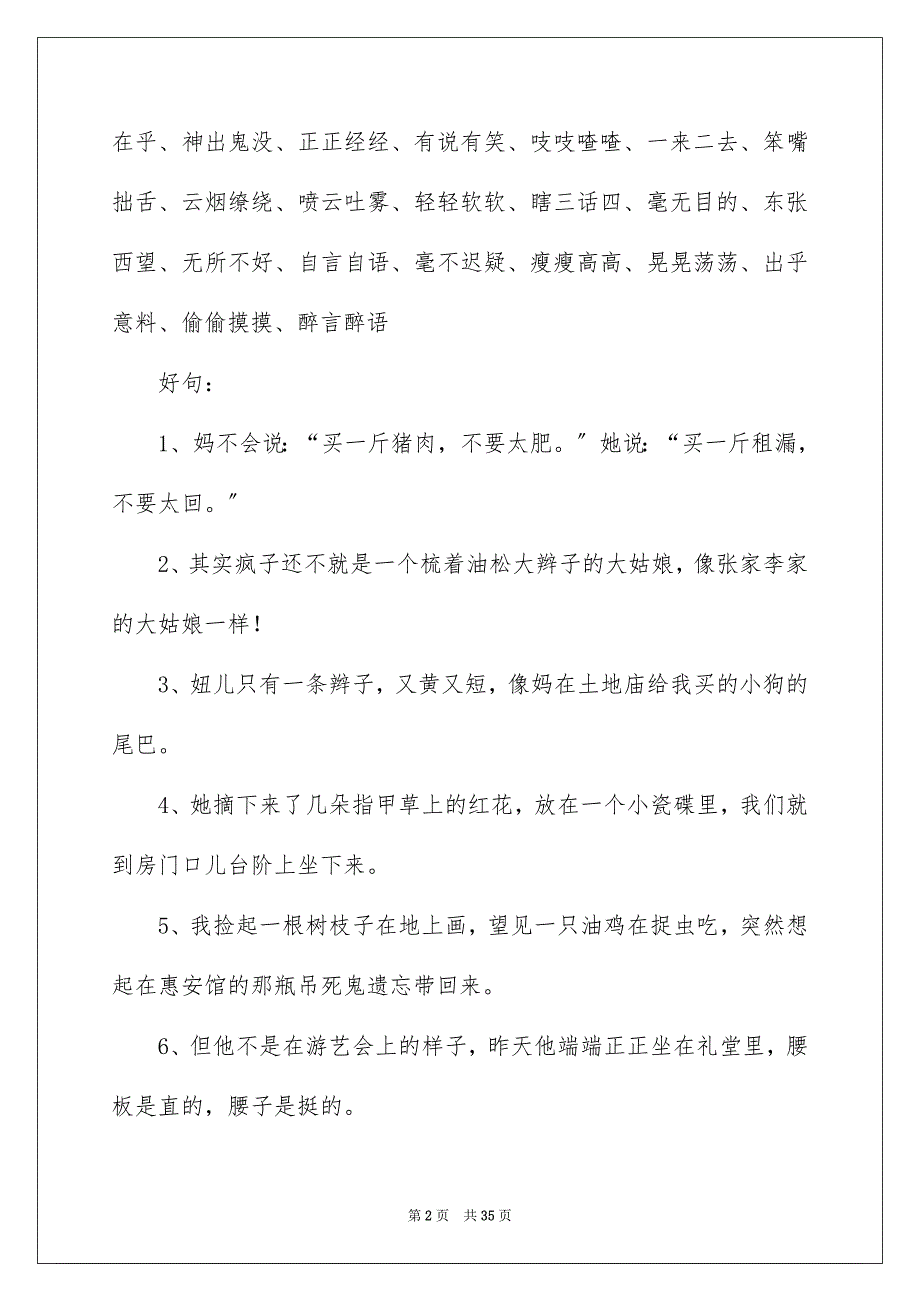 在乎、神出鬼没、正正经经、有说有笑、吱吱喳喳、一来二去、笨嘴
拙舌、云烟缭绕、喷云吐雾、轻轻软软、瞎三话四、毫无目的、东张
西望、无所不好、自言自语、毫不迟疑、瘦瘦高高、晃晃荡荡、出乎
意料、偷偷摸摸、醉言醉语
好句：
1、妈不会说：“买一斤猪肉，不要太肥。〞她说：“买一斤租漏，
不要太回。〞
2、其实疯子还不就是一个梳着油松大辫子的大姑娘，像张家李家
的大姑娘一样！
3、妞儿只有一条辫子，又黄又短，像妈在土地庙给我买的小狗的
尾巴。
4、她摘下来了几朵指甲草上的红花，放在一个小瓷碟里，我们就
到房门口儿台阶上坐下来。
5、我捡起一根树枝子在地上画，望见一只油鸡在捉虫吃，突然想
起在惠安馆的那瓶吊死鬼遗忘带回来。
6、但他不是在游艺会上的样子，昨天他端端正正坐在礼堂里，腰
板是直的，腰子是挺的。
第 2 页 共 35 页